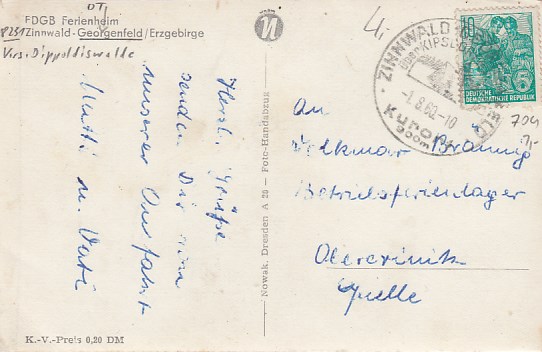 OTJ
FDGB Ferienheim
8251 Zinnwald-Georgenfeld/Erzgebirge
Herzl. Grüße
senden Dir von
unserer Anfahrt
Mutti u. Vati
K.-V.-Preis 0,20 DM
Nowak, Dresden A 28 — Foto-Handabzug
ZINNWALD
-1.8.60-10
Kurort
10
DEUTSCHE
DEMOKRATISCHE REPUBLIK
704
An
Volkmar Bräunig
Betriebsferienlager
Obercrinitz
Quelle